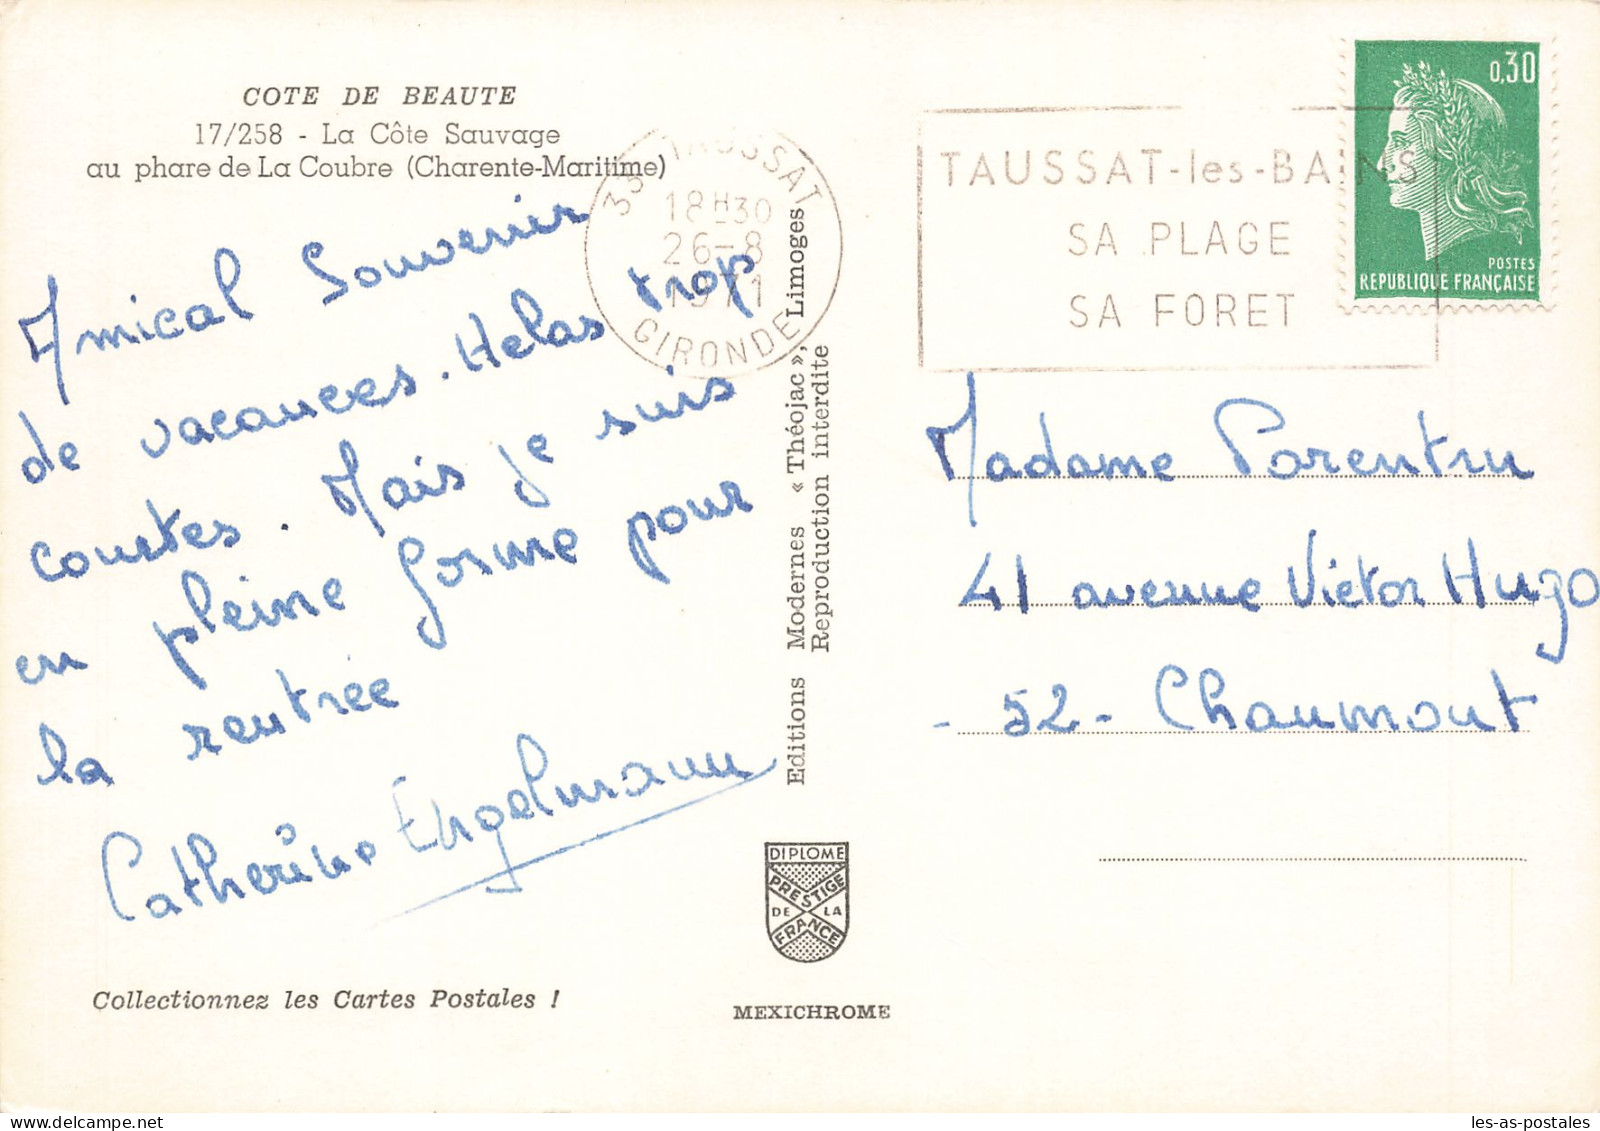 COTE DE BEAUTE
17/258 - La Côte Sauvage
au phare de La Coubre (Charente-Maritime)
Amical Souvenir
de vacances. Helas trop
courtes. Mais je suis
en pleine forme pour
la rentrée
Catherine Engelmann
Collectionnez les Cartes Postales !
33 TAUSSAT
18H30
26-8
1971
GIRONDE
Editions Modernes « Théojac », Limoges
Reproduction interdite
DIPLOME
PRESTIGE
DE LA
FRANCE
MEXICHROME
TAUSSAT-les-BAINS
SA PLAGE
SA FORET
0,30
POSTES
REPUBLIQUE FRANÇAISE
Madame Parentru
41 avenue Victor Hugo
- 52 - Chaumont
les-as-postales